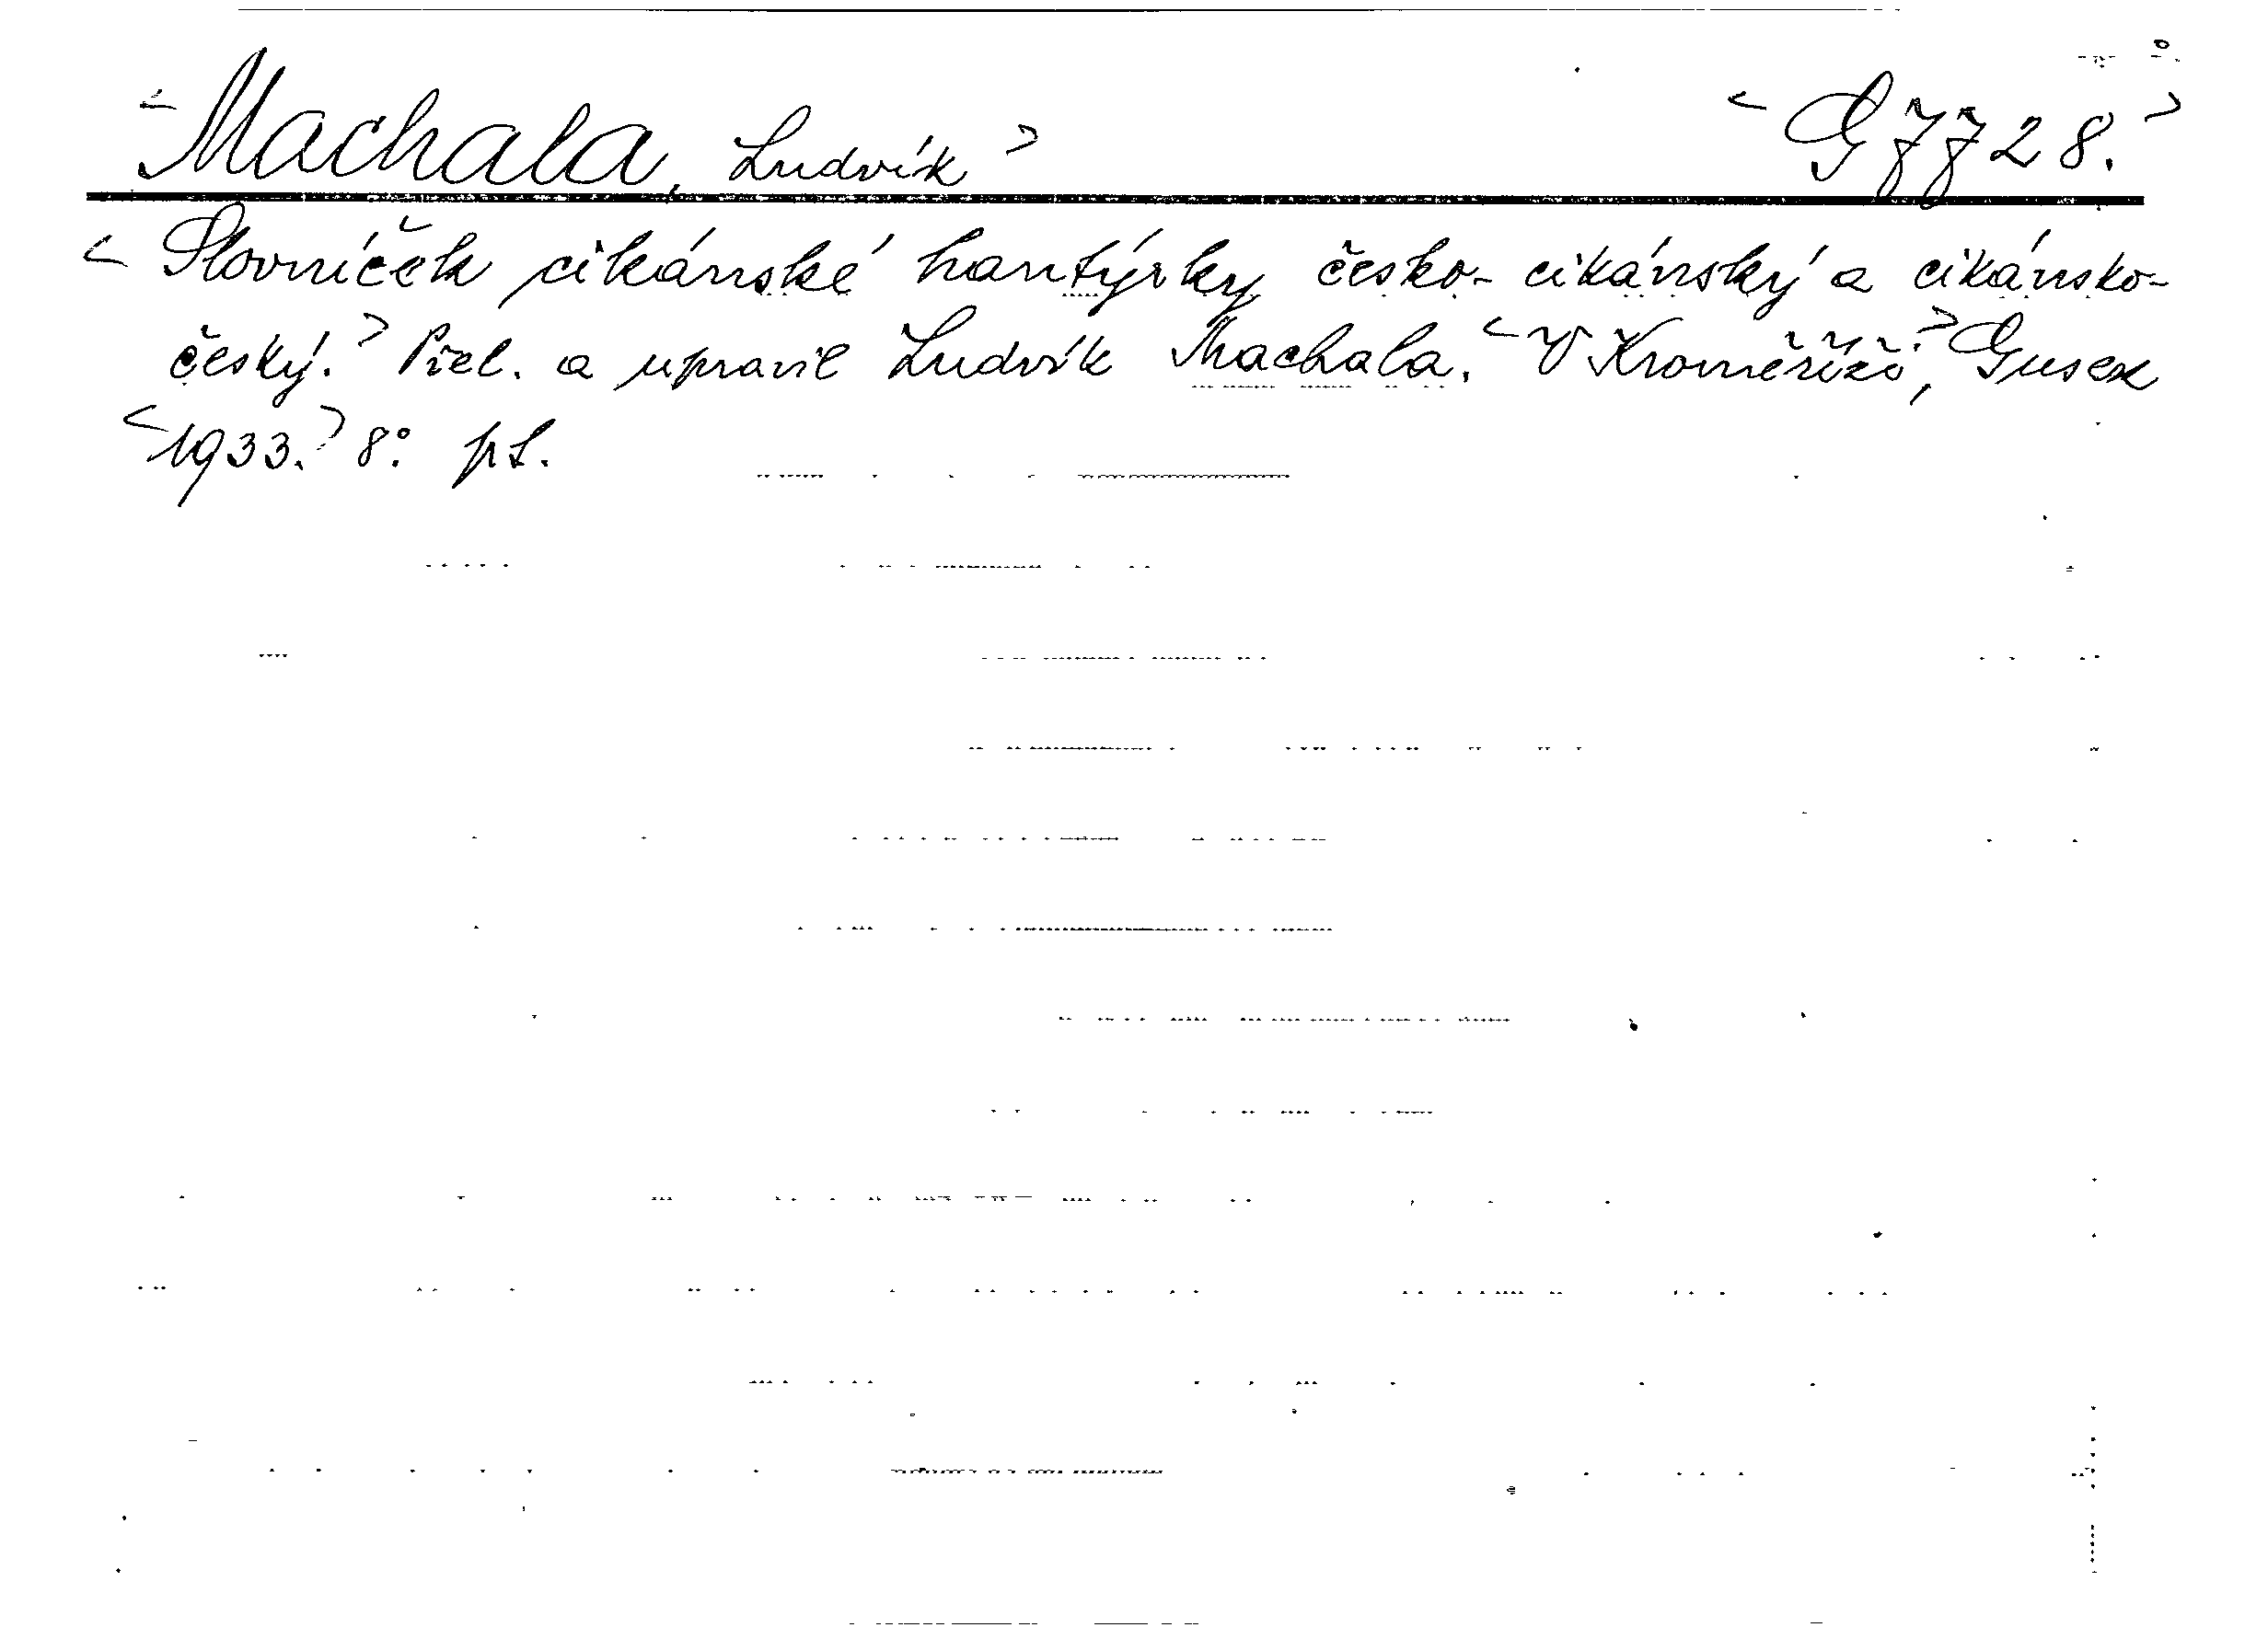 <Machala, Ludvík> <G 7728.>
<Slovníček cikánské hantýrky česko-cikánský a cikánsko-
český.> Přel. a upravil Ludvík Machala. <V Kroměříži>, Gusek
<1933.> 8° pt.